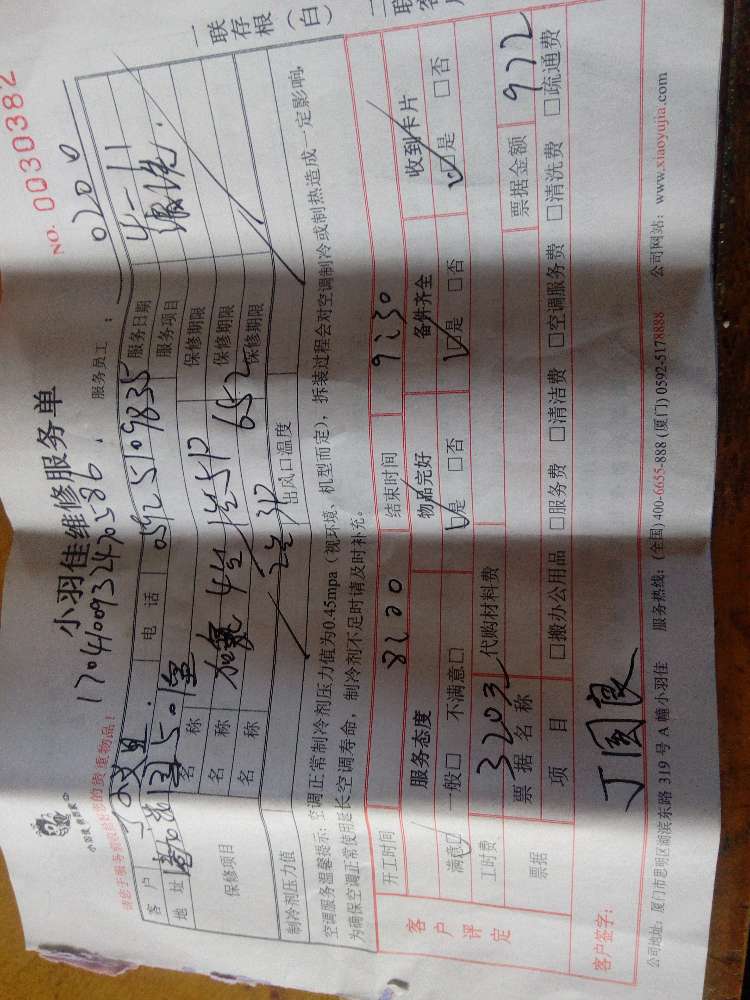 NO. 0030382
小羽佳维修服务单
17041009324470586
服务员工：
0200
一联存根（白）
客户
电话
0592 5109835
服务日期
4-11
地址
服务项目
保修项目
名称
保修期限
名称
加氟
保修期限
652
名称
保修期限
制冷剂压力值
出风口温度
空调服务温馨提示：空调正常制冷剂压力值为0.45mpa（视环境、机型而定），拆装过程会对空调制冷或制热造成一定影响，
为确保空调正常使用延长空调寿命，制冷剂不足时请及时补充。
客户评定
开工时间
8:20
结束时间
9:30
服务态度
物品完好
备件齐全
收到卡片
满意□ 一般□ 不满意□
□是 □否
□是 □否
□是 □否
工时费
320元
代购材料费
票据
票据名称
票据金额
972
项目
□搬办公用品 □服务费 □清洁费 □空调服务费 □清洗费 □疏通费
客户签字：
丁国良
公司地址：厦门市思明区湖滨东路 319 号 A 幢小羽佳 服务热线：(全国) 400-6655-888 (厦门) 0592-5178888 公司网站：www.xiaoyujia.com